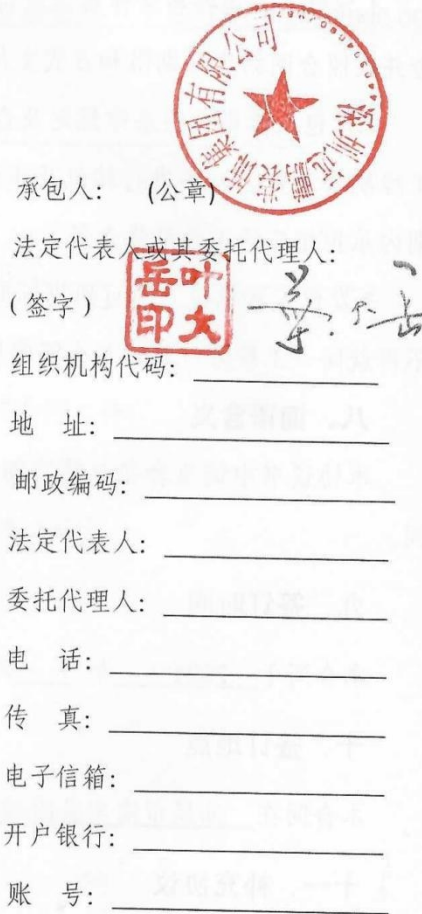 深圳远鹏装饰集团有限公司
承包人： (公章)
法定代表人或其委托代理人:
(签字)
叶大岳印
叶大岳
组织机构代码:
地 址:
邮政编码:
法定代表人:
委托代理人:
电 话:
传 真:
电子信箱:
开户银行:
账 号: